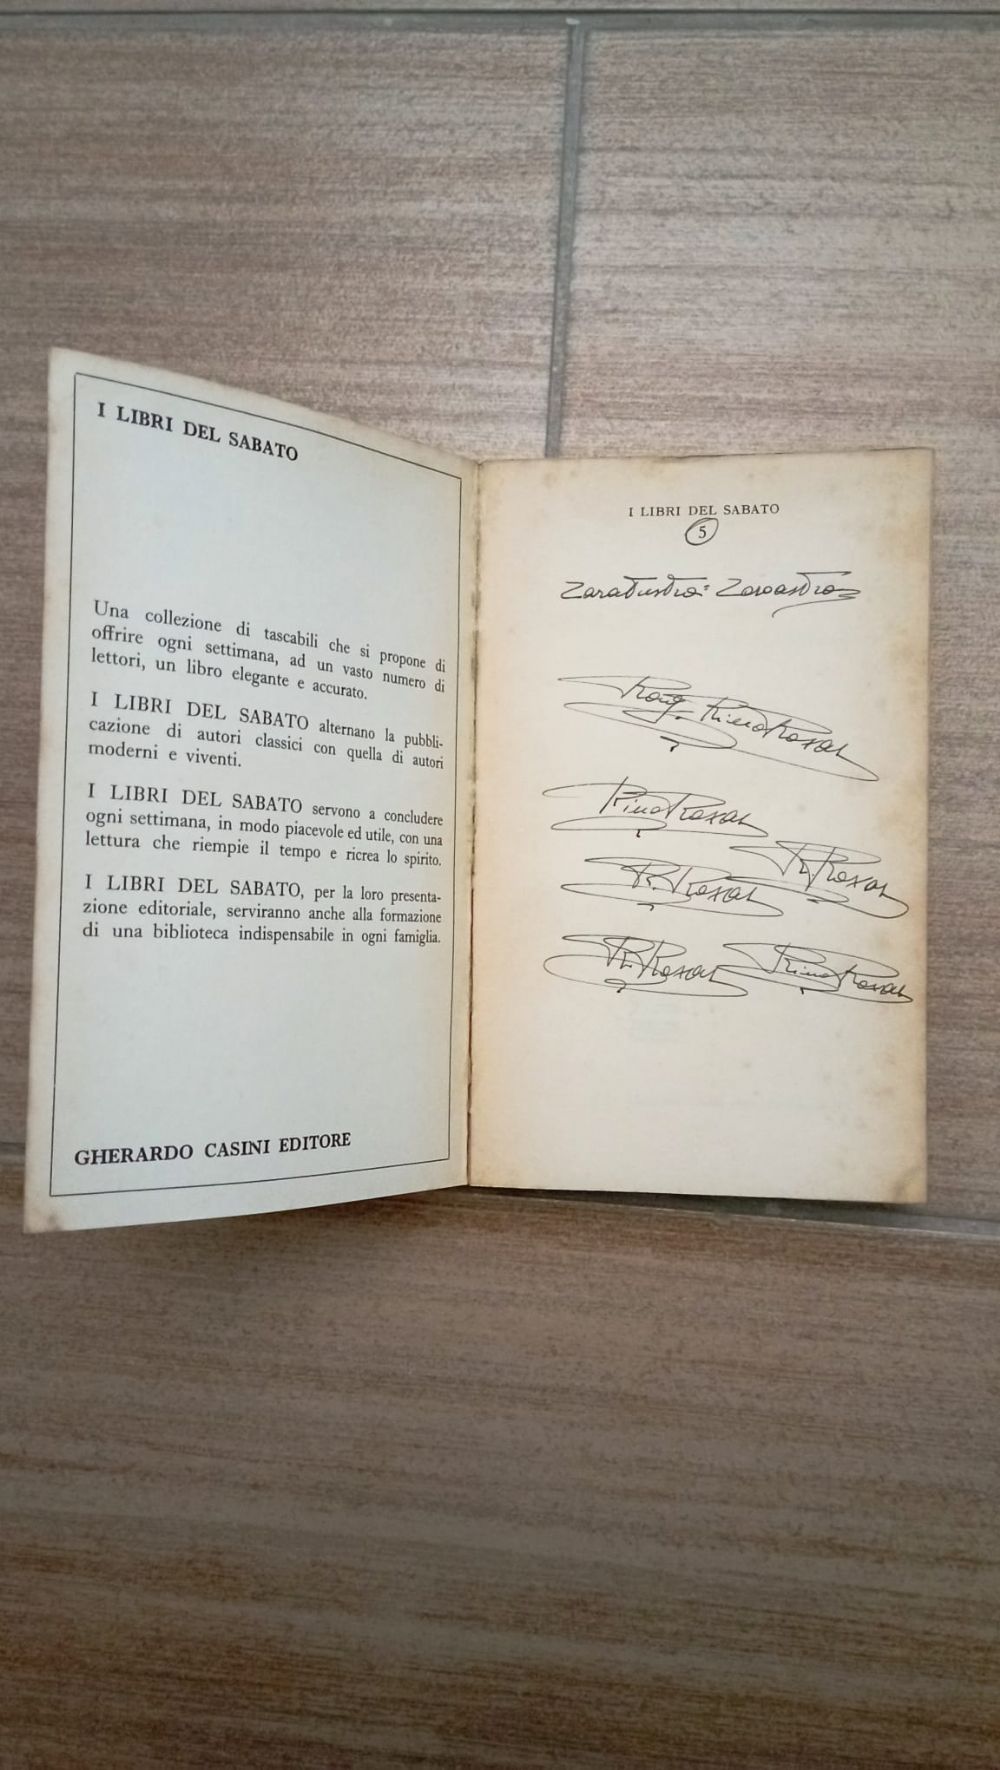 I LIBRI DEL SABATO
Una collezione di tascabili che si propone di
offrire ogni settimana, ad un vasto numero di
lettori, un libro elegante e accurato.
I LIBRI DEL SABATO alternano la pubbli-
cazione di autori classici con quella di autori
moderni e viventi.
I LIBRI DEL SABATO servono a concludere
ogni settimana, in modo piacevole ed utile, con una
lettura che riempie il tempo e ricrea lo spirito.
I LIBRI DEL SABATO, per la loro presenta-
zione editoriale, serviranno anche alla formazione
di una biblioteca indispensabile in ogni famiglia.
GHERARDO CASINI EDITORE
I LIBRI DEL SABATO
5
Zaratustra: Zoroastro
Rino
Rino
Rino